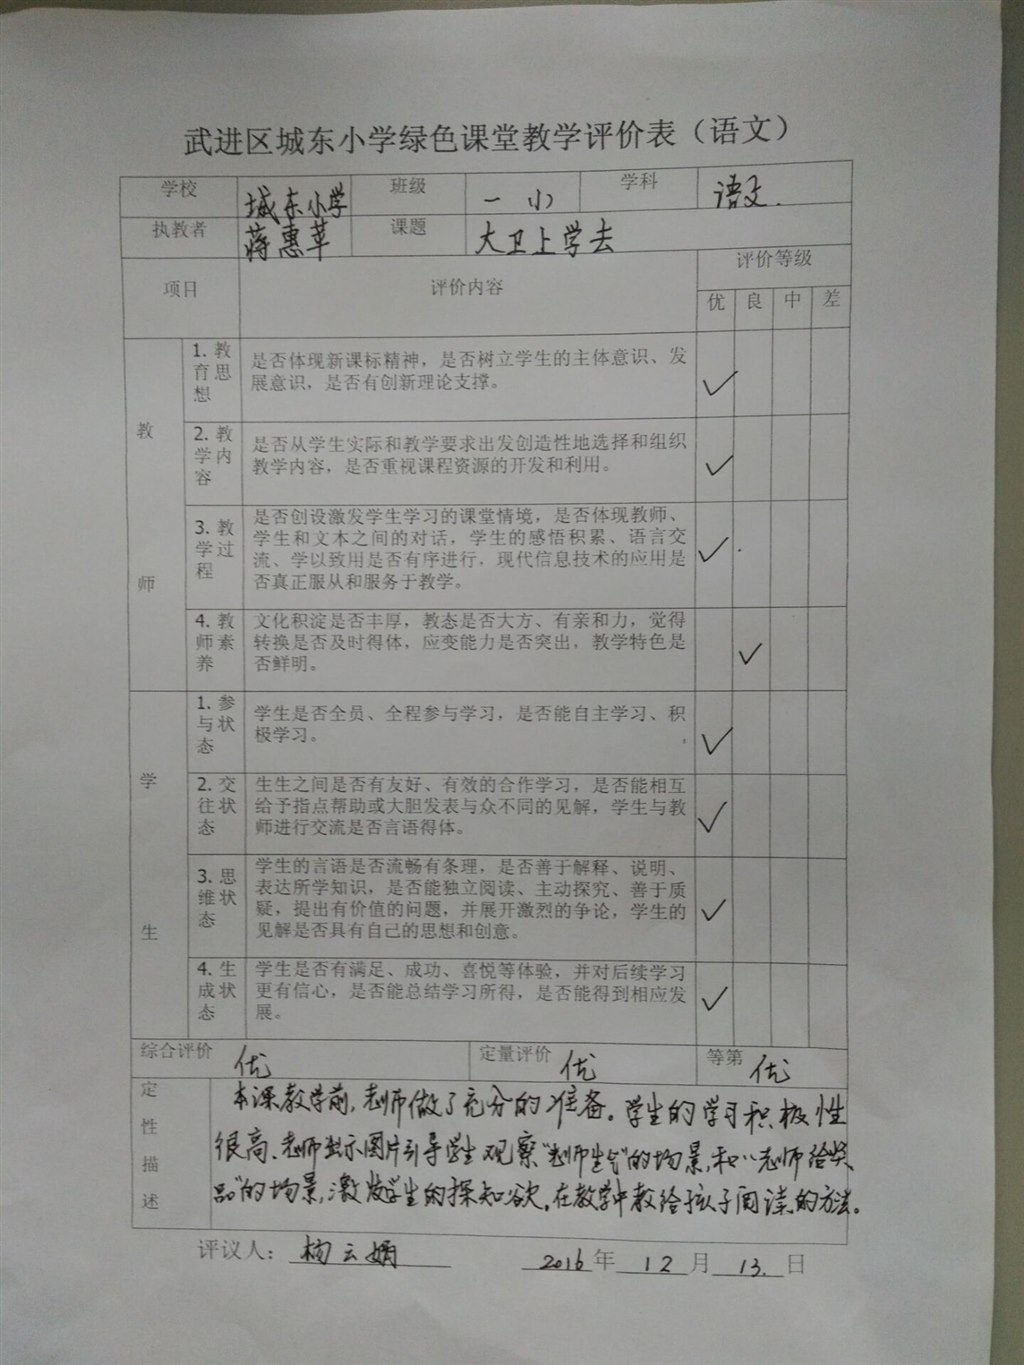 武进区城东小学绿色课堂教学评价表（语文）
学校 城东小学 班级 一 小 学科 语文.
执教者 蒋惠苹 课题 大卫上学去
项目 评价内容 评价等级
优 良 中 差
教 师
1. 教育思想
是否体现新课标精神，是否树立学生的主体意识、发
展意识，是否有创新理论支撑。
✓
2. 教学内容
是否从学生实际和教学要求出发创造性地选择和组织
教学内容，是否重视课程资源的开发和利用。
✓
3. 教学过程
是否创设激发学生学习的课堂情境，是否体现教师、
学生和文本之间的对话，学生的感悟积累、语言交
流、学以致用是否有序进行，现代信息技术的应用是
否真正服从和服务于教学。
✓
4. 教师素养
文化积淀是否丰厚，教态是否大方、有亲和力，觉得
转换是否及时得体，应变能力是否突出，教学特色是
否鲜明。
✓
学 生
1. 参与状态
学生是否全员、全程参与学习，是否能自主学习、积
极学习。
✓
2. 交往状态
生生之间是否有友好、有效的合作学习，是否能相互
给予指点帮助或大胆发表与众不同的见解，学生与教
师进行交流是否言语得体。
✓
3. 思维状态
学生的言语是否流畅有条理，是否善于解释、说明、
表达所学知识，是否能独立阅读、主动探究、善于质
疑，提出有价值的问题，并展开激烈的争论，学生的
见解是否具有自己的思想和创意。
✓
4. 生成状态
学生是否有满足、成功、喜悦等体验，并对后续学习
更有信心，是否能总结学习所得，是否能得到相应发
展。
✓
综合评价 优 定量评价 优 等第 优
定性描述
本课教学前，老师做了充分的准备。学生的学习积极性
很高、老师出示图片引导学生观察“老师生气”的场景，和“老师给奖
品”的场景，激发学生的探知欲。在教学中教给孩子阅读的方法。
评议人：杨云娟 2016年 12 月 13. 日